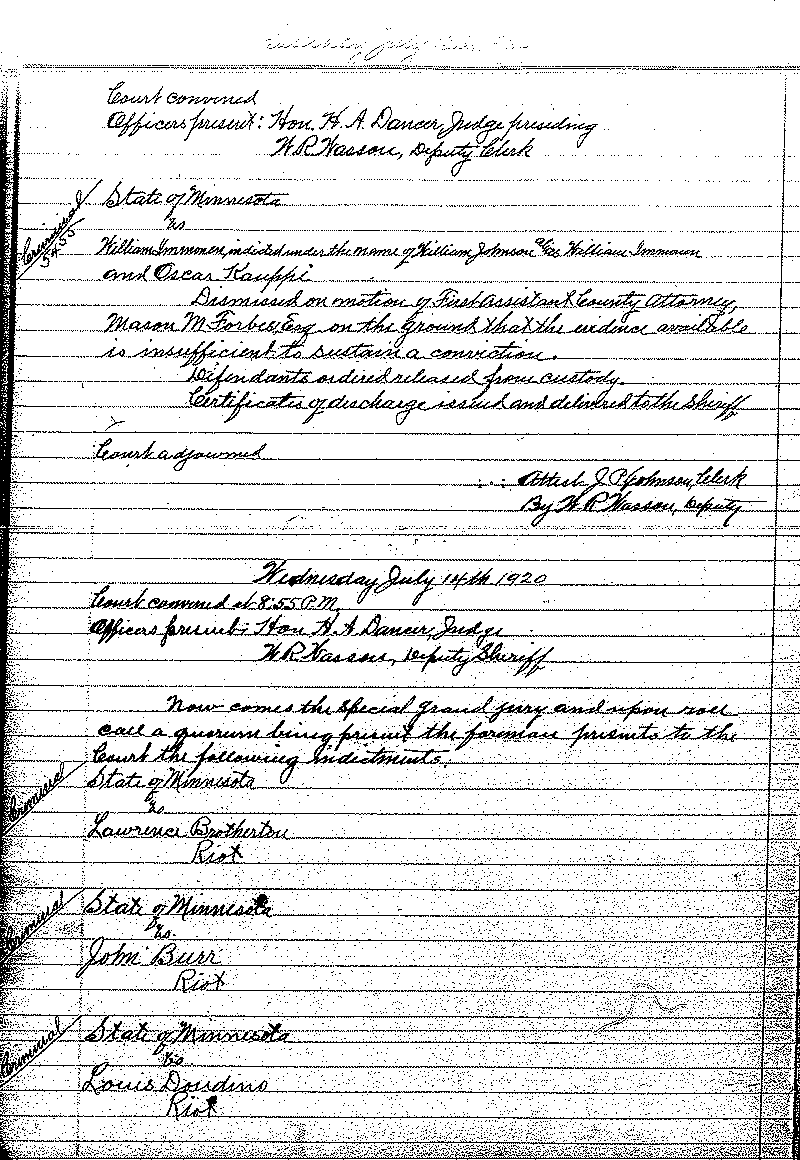 July
Court convened
Officers present: Hon. H. A. Dancer, Judge presiding
W R Wasson, Deputy Clerk
Criminal
5455
State of Minnesota
vs
William Immonen, indicted under the name of William Johnson William Immonen
and Oscar Kauppi
Dismissed on motion of First Assistant County Attorney,
Mason M Forbes, Esq on the ground that the evidence available
is insufficient to sustain a conviction.
Defendants ordered released from custody.
Certificates of discharge issued and delivered to the Sheriff
Court adjourned
Attest J. P. Johnson, Clerk
By W R Wasson, Deputy
Wednesday July 14th 1920
Court convened at 8:55 P.M.
Officers present: Hon H A Dancer, Judge
W R Wasson, Deputy Sheriff
Now comes the special grand jury and upon roll
call a quorum being present the foreman presents to the
Court the following indictments,
Criminal
State of Minnesota
vs
Lawrence Brotherton
Riot
Criminal
State of Minnesota
vs.
John Burr
Riot
Criminal
State of Minnesota
vs
Louis Dondino
Riot